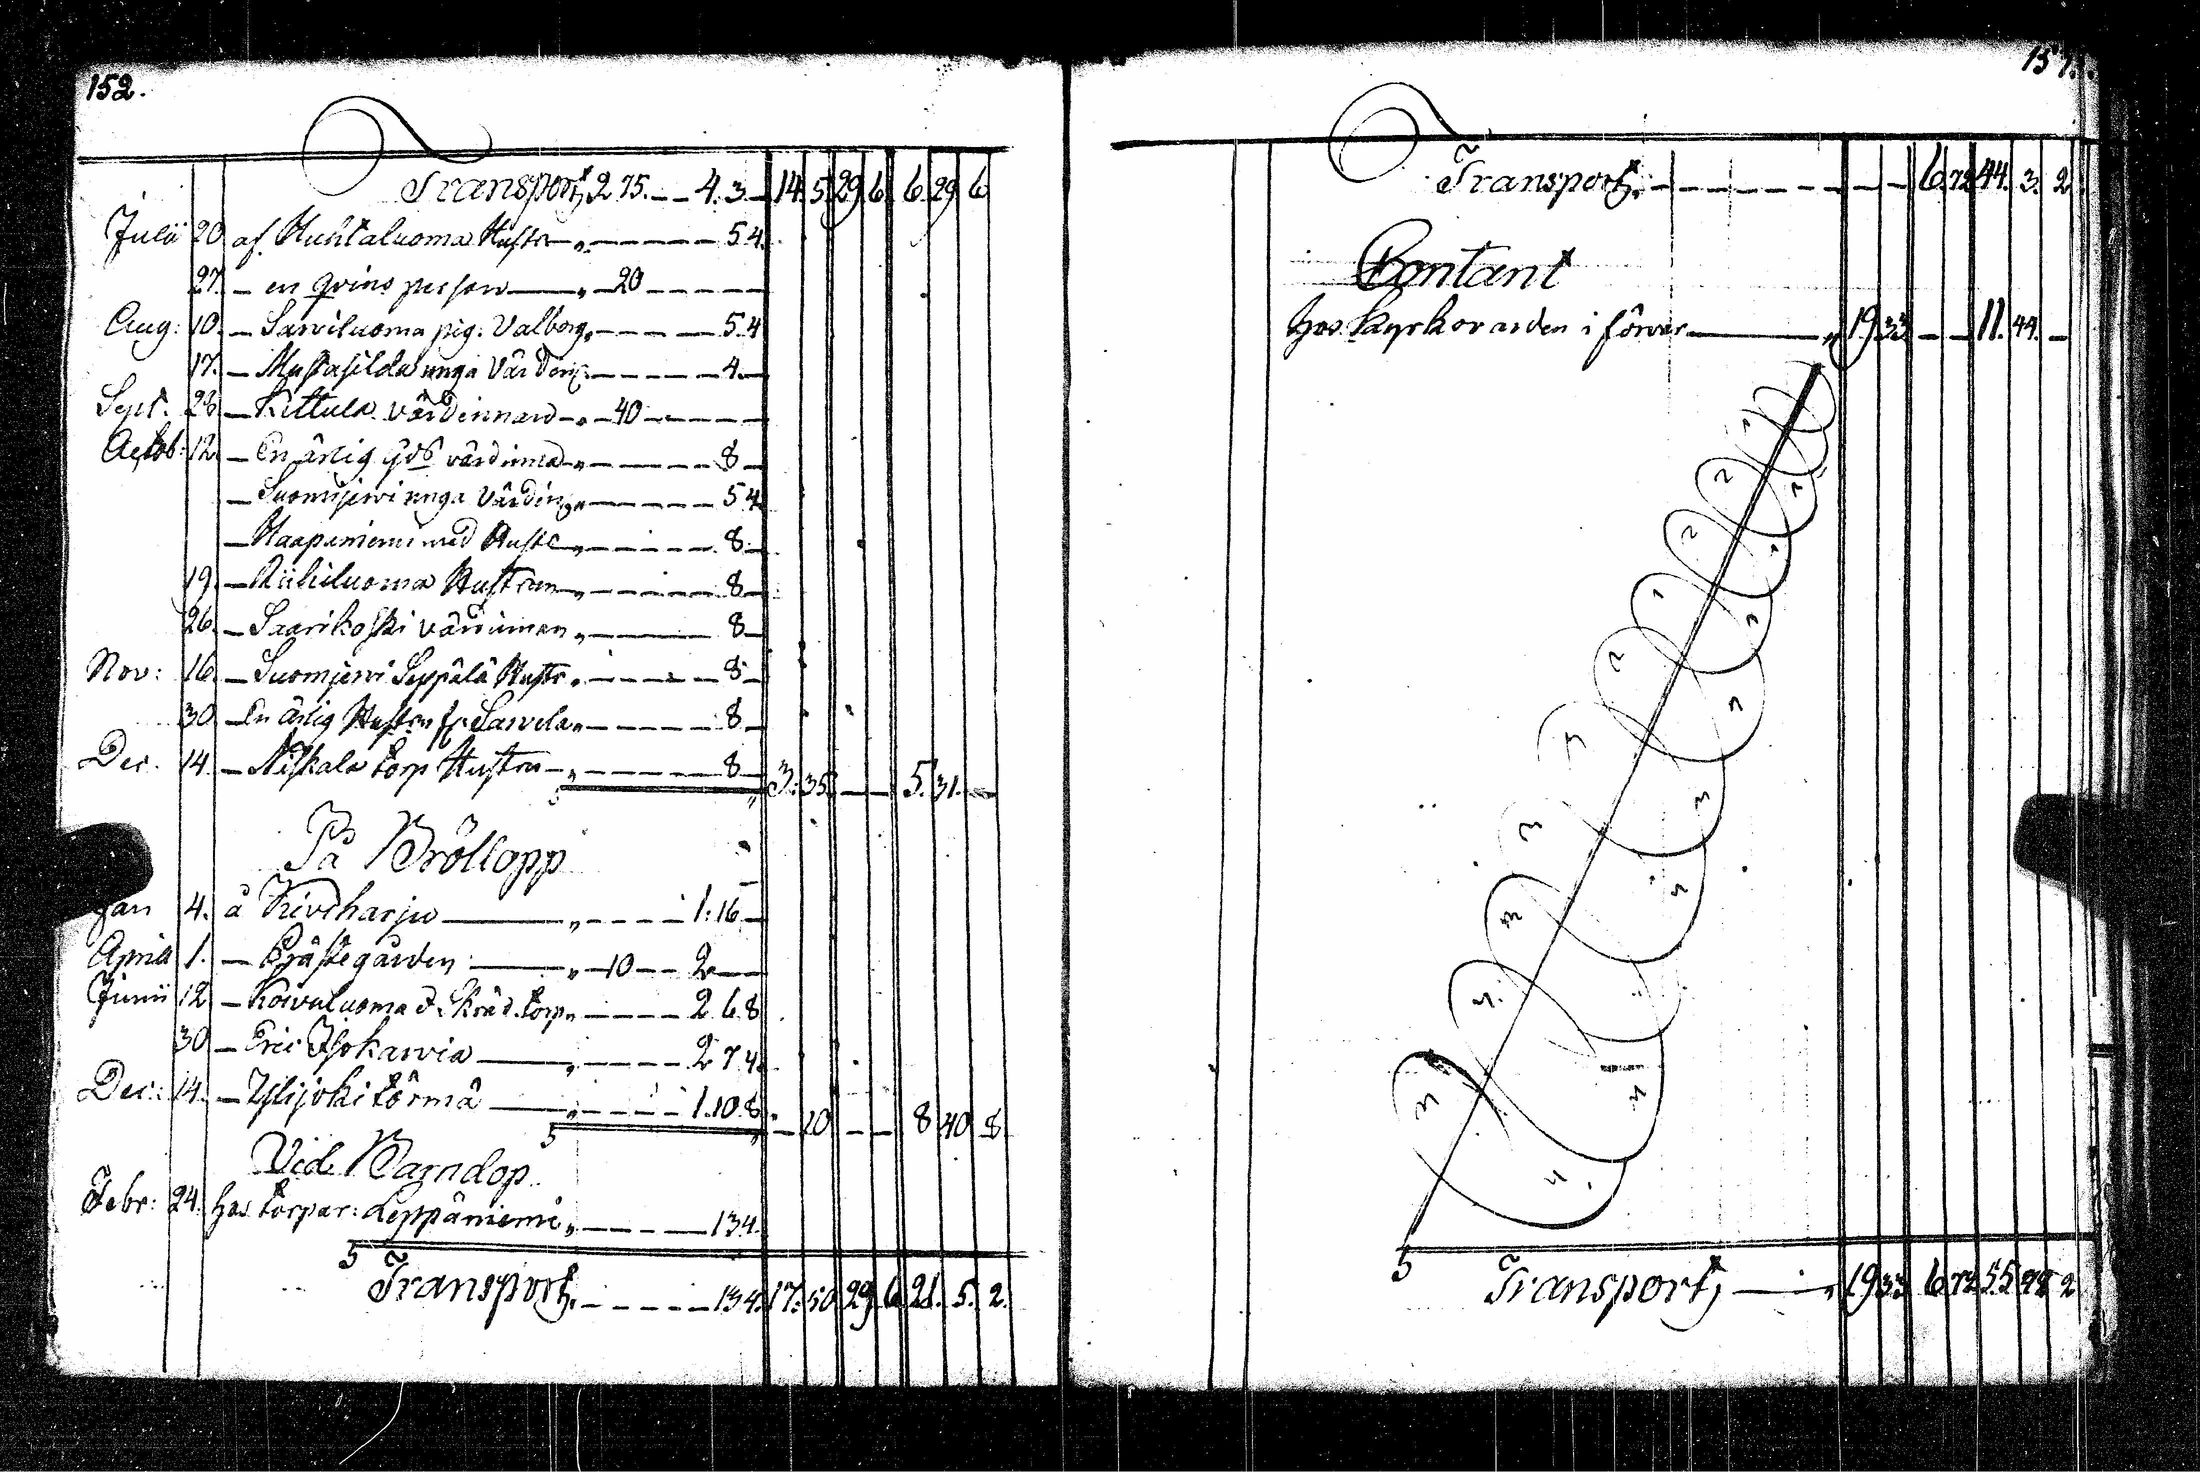 152.
Transport, 2 75. — 4. 3. 14. 5. 29 6. 6. 29. 6
Julii 20 af Huhtaluoma Hustr — " — 5. 4.
27. — en qvins person — " — 20 — — —
Aug: 10. — Sarviluoma pig: Valborg, " — 5. 4
17. — unga Värdin: — 4. —
Sept. 28. — Kettula värdinnan — " — 40 — — —
Octob: 12. — En ärlig värdinna — " — 8 —
— Suomijerwi unga Värdin, " — 5 4
— Haapaniemi med Hustr — " — 8. —
19. — Hustrun — " — 8 —
26. — Saarikoski värdinnan " — 8 —
Nov: 16. — Suomijerwi Seppälä Hustr. " — 8 —
30. — En ärlig Hustru fr. Sarvela " — 8 —
Dec. 14. — Niskala torp Hustru — " — 8 — 3. 35. — — 5. 31. —
På Bröllopp
Jan 4. å Kiviharju — " — 1. 16 —
Aprill 1. — Prästegården — " — 10 — 2 —
Junii 12 — Koivuluoma Skräd. torp " — 2 6 8
30 — Eric Isokarvia — " — 2 7 4.
Dec.: 14. — Ylijoki törmä — " — 1. 10. 8. — 20 — — 8 40 8
Vid Barndop
Febr: 24. hos torpar: Leppäniemi " — 13 4.
Transport, " — 13 4. 17. 50 29. 6 21. 5. 2.
Transport, — 6. 72 44. 3. 2
Contant
hos Kyrkovärden i förvar — " 19. 33 — — 11. 44. —
Transport, — " 19 33 6. 72 55 2